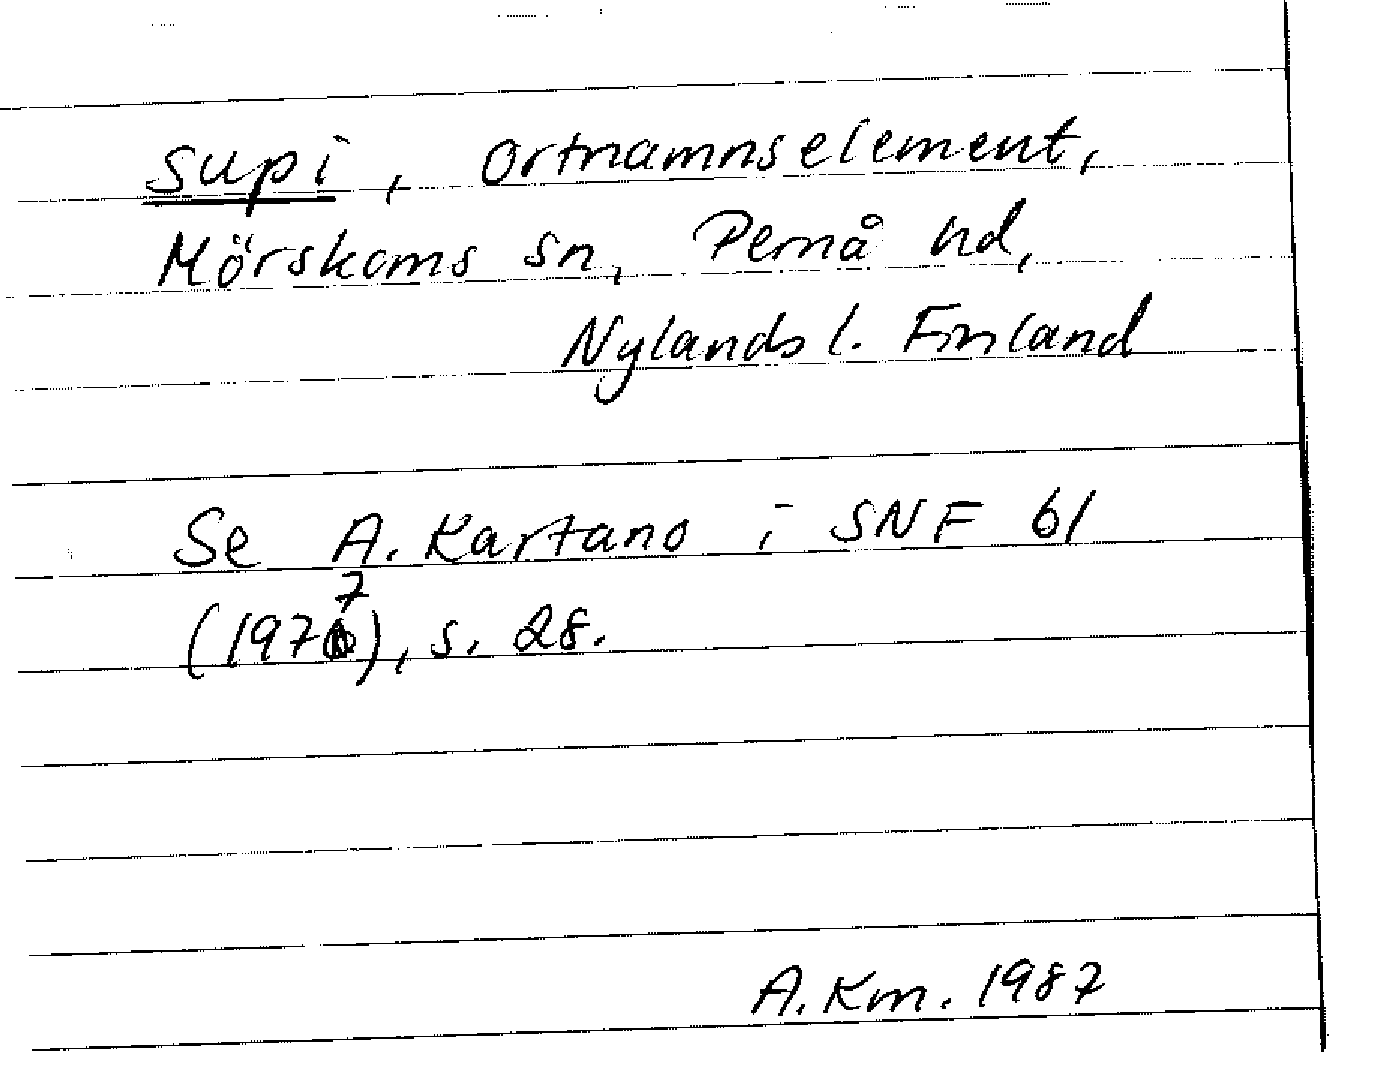 supi, ortnamnselement,
Mörskoms sn, Pernå hd,
Nylands l. Finland
Se A. Kartano i SNF 61
(1977), s. 28.
A. Km. 1987